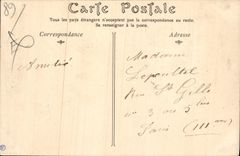 89
Carte Postale
Tous les pays étrangers n'acceptent pas la correspondance au recto.
Se renseigner à la poste.
Correspondance
Adresse
Amitié
Madame
Lepoultel
Rue St Gilles
nº 3 ou 5
Paris (III